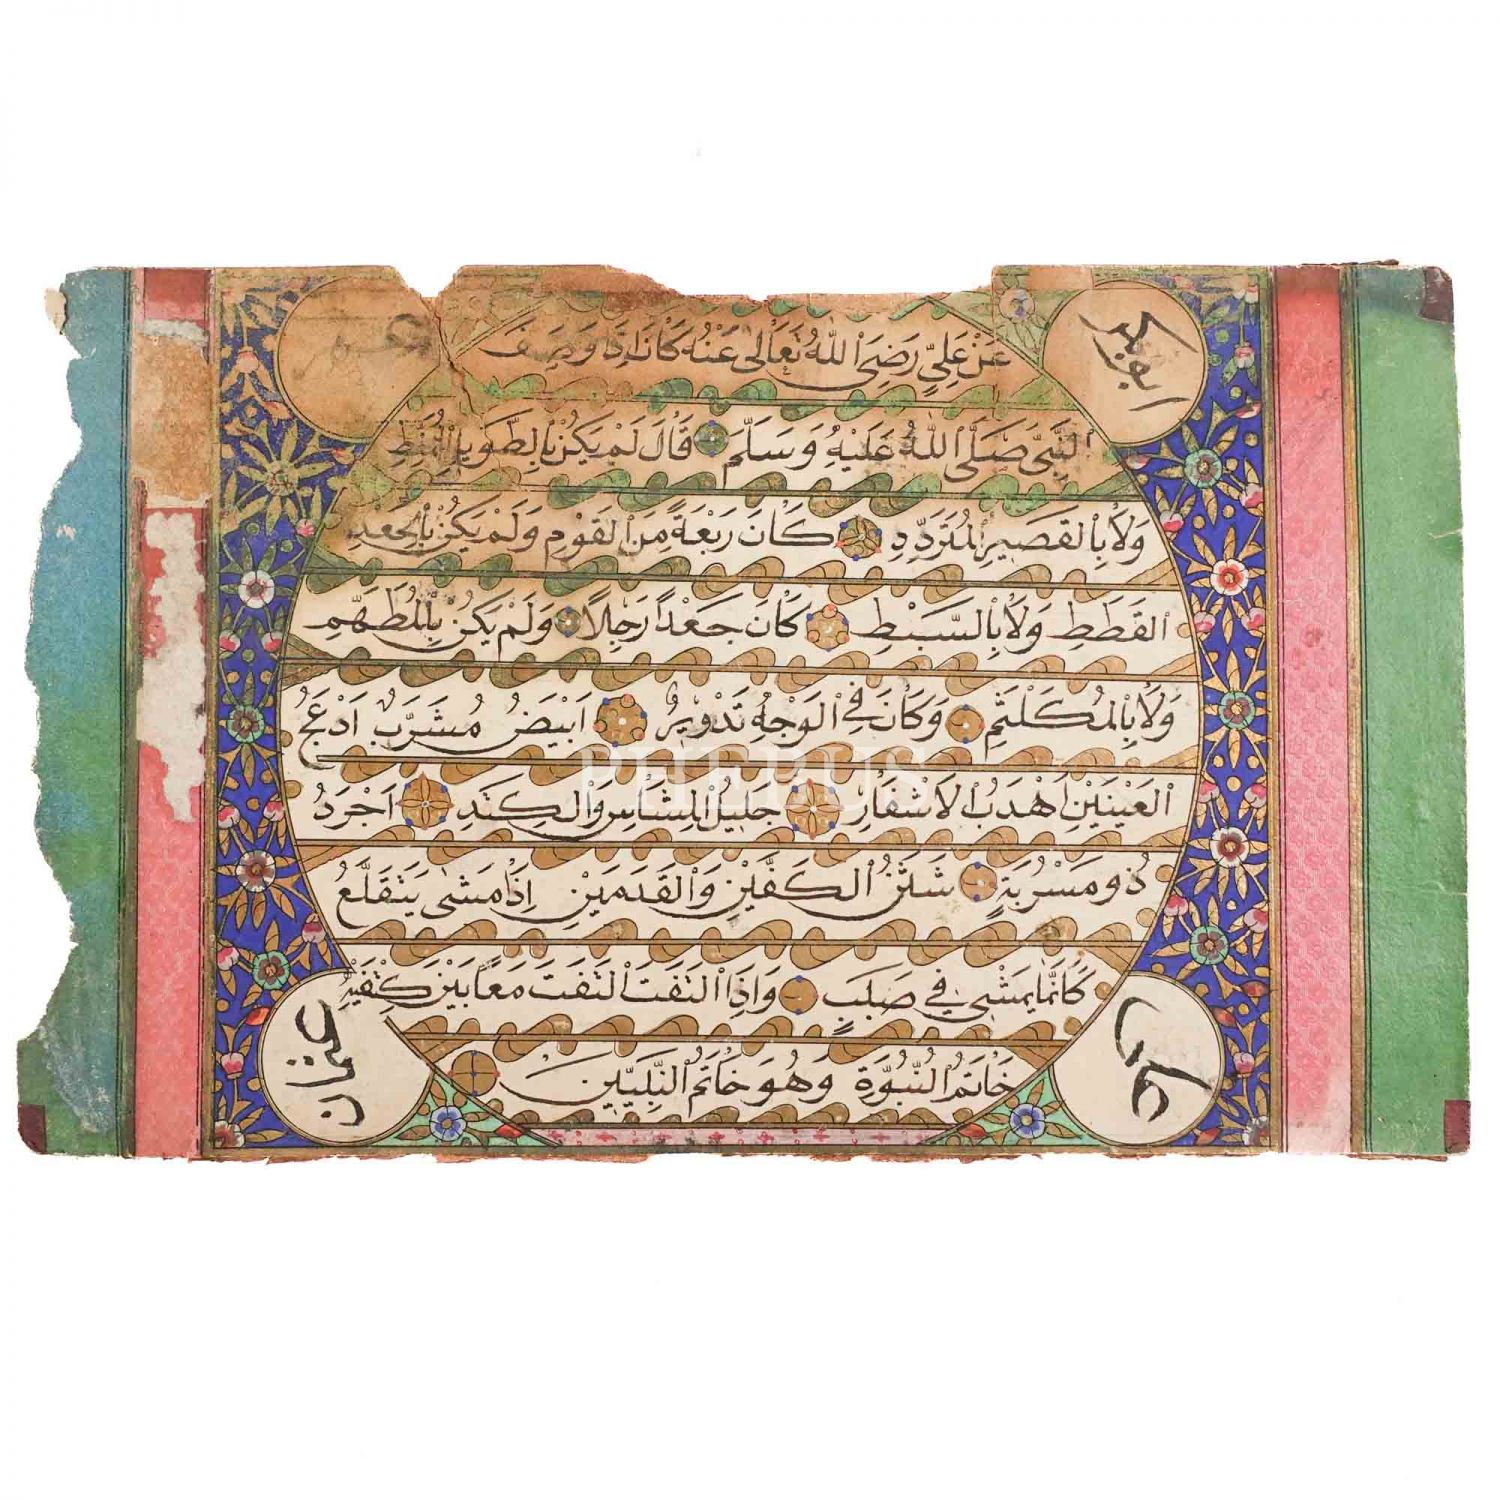 ابو بكر
عمر
عَنْ عَلِيٍّ رَضِيَ اللّٰهُ تَعَالٰى عَنْهُ كَانَ اِذَا وَصَفَ
النَّبِيَّ صَلَّى اللّٰهُ عَلَيْهِ وَسَلَّمَ قَالَ لَمْ يَكُنْ بِالطَّوِيلِ الْمُمَّغِطِ
وَلَا بِالْقَصِيرِ الْمُتَرَدِّدِ كَانَ رَبْعَةً مِنَ الْقَوْمِ وَلَمْ يَكُنْ بِالْجَعْدِ
الْقَطَطِ وَلَا بِالسَّبْطِ كَانَ جَعْدًا رَجِلًا وَلَمْ يَكُنْ بِالْمُطَهَّمِ
وَلَا بِالْمُكَلْثَمِ وَكَانَ فِي الْوَجْهِ تَدْوِيرٌ اَبْيَضُ مُشَرَّبٌ اَدْعَجُ
الْعَيْنَيْنِ اَهْدَبُ الْاَشْفَارِ جَلِيلُ الْمُشَاشِ وَالْكَتَدِ اَجْرَدُ
PHEBUS
ذُو مَسْرُبَةٍ شَثْنُ الْكَفَّيْنِ وَالْقَدَمَيْنِ اِذَا مَشٰى يَتَقَلَّعُ
كَاَنَّمَا يَمْشِي فِي صَبَبٍ وَاِذَا الْتَفَتَ الْتَفَتَ مَعًا بَيْنَ كَتِفَيْهِ
خَاتَمُ النُّبُوَّةِ وَهُوَ خَاتَمُ النَّبِيِّينَ
على
عثمان